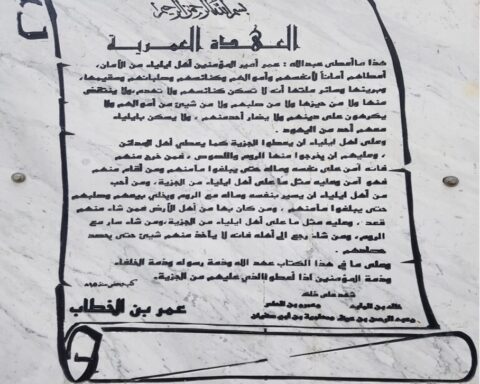 بسم الله الرحمن الرحيم
العهدة العمرية
هذا ما أعطى عبدالله : عمر أمير المؤمنين أهل ايلياء من الأمان،
أعطاهم أماناً لأنفسهم وأموالهم وكنائسهم وصلبانهم وسقيمها،
وبريئها وسائر ملتها أنه لا تسكن كنائسهم ولا تهدم،ولا ينتقض
منها ولا من حيزها ولا من صلبهم ولا من شيئ من أموالهم ولا
يكرهون على دينهم ولا يضار أحدمنهم ، ولا يسكن بايلياء
معهم أحد من اليهود.
وعلى أهل ايلياء ان يعطوا الجزية كما يعطي أهل المدائن
، وعليهم ان يخرجوا منها الروم واللصوص ، فمن خرج منهم
فانه آمن على نفسه وماله حتى يبلغوا مأمنهم ومن أقام منهم
فهو آمن وعليه مثل ما على أهل ايلياء من الجزية، ومن أحب
من أهل ايلياء ان يسير بنفسه وماله مع الروم ويخلي بيعهم وصلبهم
حتى يبلغوا مأمنهم ، ومن كان بها من أهل الأرض فمن شاء منهم
قعد ، وعليه مثل ما على أهل ايلياء من الجزية،ومن شاء سار مع
الروم، ومن شاء رجع الى أهله فانه لا يأخذ منهم شيئ حتى يحصد
حصادهم.
وعلى ما في هذا الكتاب عهد الله وذمة رسوله وذمة الخلفاء
وذمة المؤمنين اذا أعطوا الذي عليهم من الجزية.
شهد على ذلك
خالد بن الوليد وعمرو بن العاص
وعبد الرحمن بن عوف ومعاوية بن أبي سفيان
عمر بن الخطاب